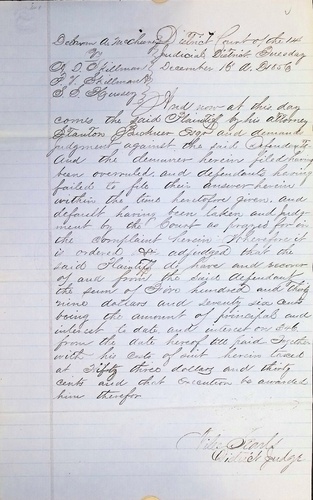 District Court of the 14
vs Judicial District Tuesday
December 16 A.D.
And now at this day
comes the said Plaintiff by his attorney
Stanton Buckner Esqr and demands
judgment against the said Defendants
And the demurrer herein filed having
been overruled and defendants having
failed to file their answer herein
within the time heretofore given and
default having been taken and judg-
ment by the Court as prayed for in
the complaint herein Wherefore it
is ordered & adjudged that the
said Plaintiff do have and recover
of and from the said defendant
the sum of Two hundred and thirty
nine dollars and seventy six cents
being the amount of principal and
interest to date and interest on
from the date hereof till paid together
with his costs of suit herein taxed
at Fifty three dollars and thirty
cents and that execution be awarded
him therefor
District Judge